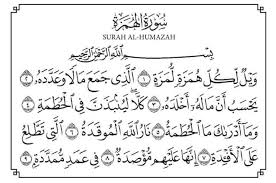 سُورَةُ الهُمَزَةِ
SURAH AL-HUMAZAH
بِسْمِ اللَّهِ الرَّحْمَٰنِ الرَّحِيمِ
وَيْلٌ لِّكُلِّ هُمَزَةٍ لُّمَزَةٍ ١ الَّذِي جَمَعَ مَالًا وَعَدَّدَهُ ٢
يَحْسَبُ أَنَّ مَالَهُ أَخْلَدَهُ ٣ كَلَّا لَيُنبَذَنَّ فِي الْحُطَمَةِ ٤
وَمَا أَدْرَاكَ مَا الْحُطَمَةُ ٥ نَارُ اللَّهِ الْمُوقَدَةُ ٦ الَّتِي تَطَّلِعُ
عَلَى الْأَفْئِدَةِ ٧ إِنَّهَا عَلَيْهِم مُّؤْصَدَةٌ ٨ فِي عَمَدٍ مُّمَدَّدَةٍ ٩